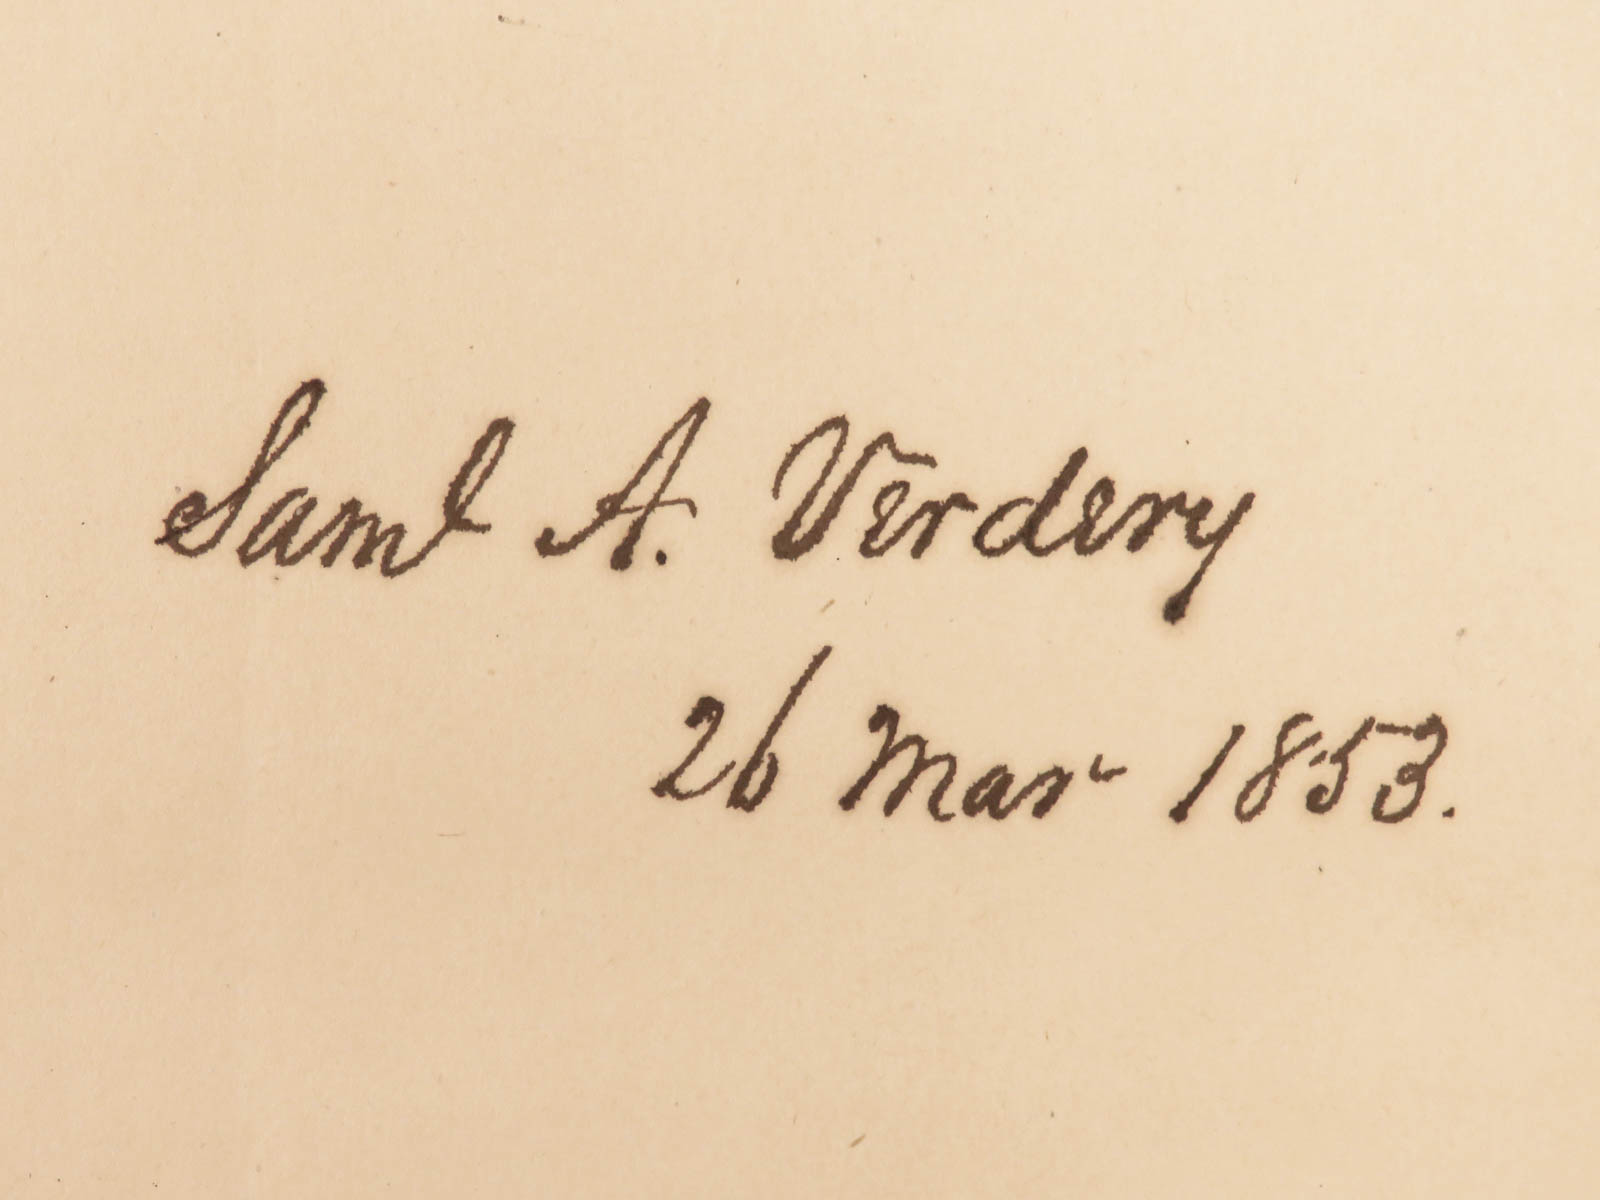 Saml A. Verdery
26 Mar 1853.